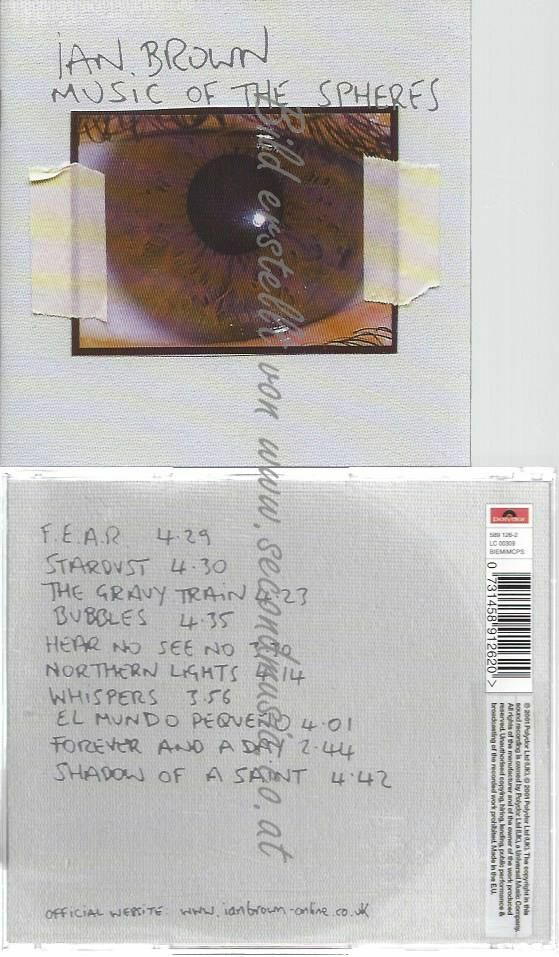 IAN BROWN
MUSIC OF THE SPHERES
Bild erstellt von www.secondmusic.co.at
F.E.A.R. 4.29
STARDUST 4.30
THE GRAVY TRAIN 4.23
BUBBLES 4.35
HEAR NO SEE NO
NORTHERN LIGHTS 4.14
WHISPERS 3.56
EL MUNDO PEQUENO 4.01
FOREVER AND A DAY 2.44
SHADOW OF A SAINT 4.42
OFFICIAL WEBSITE. www.ianbrown-online.co.uk
polydor
589 126-2
LC 00309
BIEM/MCPS
0 731458 912620 >
℗ 2001 Polydor Ltd (UK). © 2001 Polydor Ltd (UK). The copyright in this
sound recording is owned by Polydor Ltd (UK), a Universal Music Company.
All rights of the manufacturer and of the owner of the work produced
reserved. Unauthorised copying, hiring, lending, public performance &
broadcasting of the recorded work prohibited. Made in the E.U.